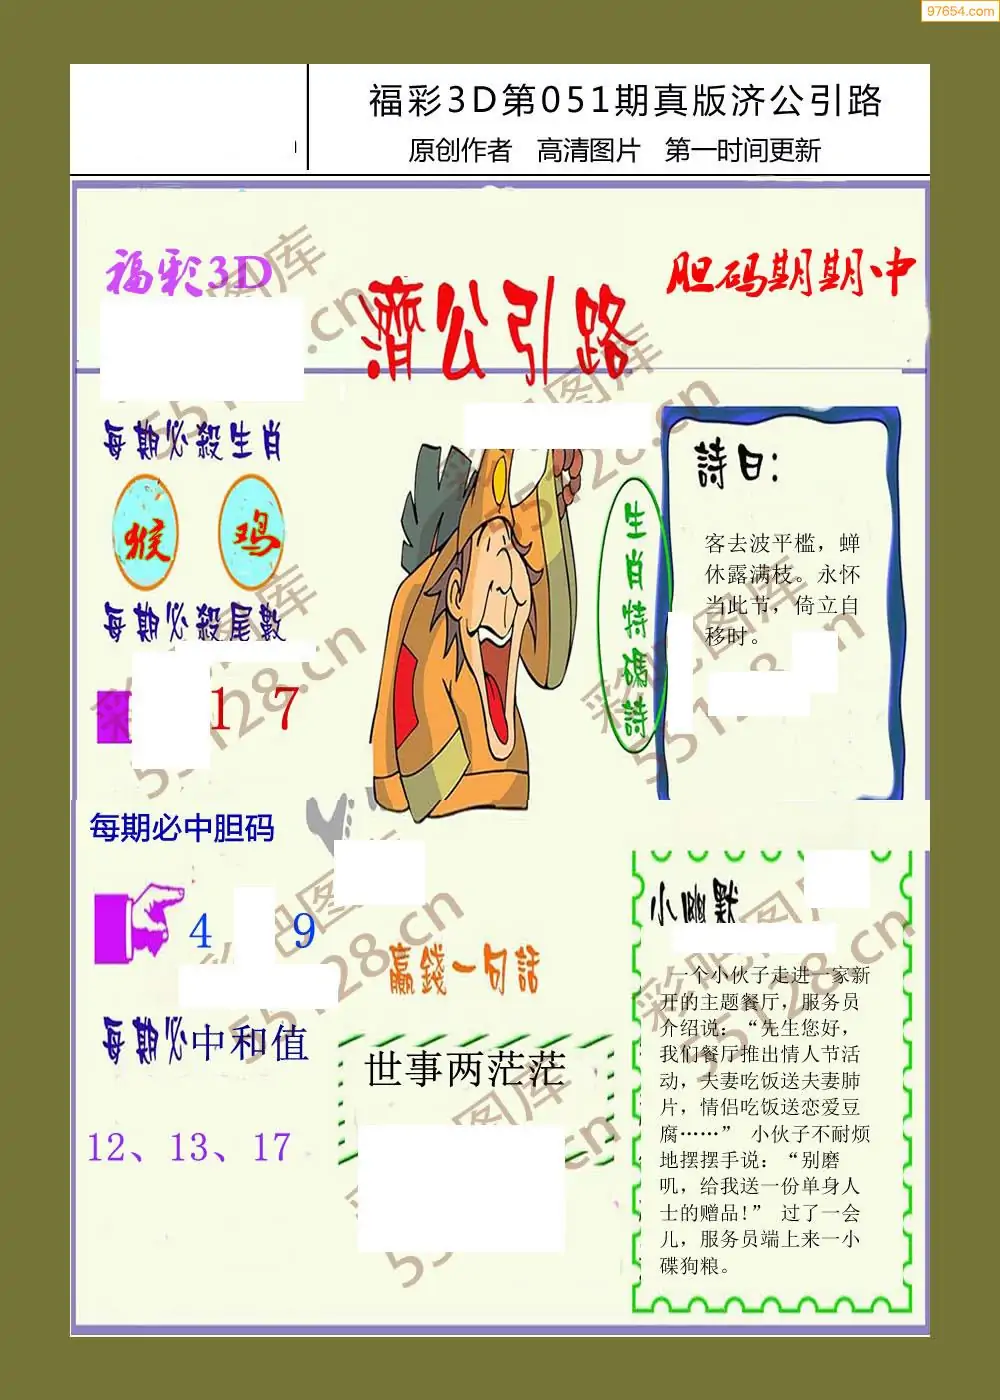 97654.com
福彩3D第051期真版济公引路
原创作者 高清图片 第一时间更新
福彩3D
胆码期期中
濟公引路
每期必殺生肖
猴 鸡
每期必殺尾數
1 7
每期必中胆码
4 9
每期必中和值
12、13、17
生肖特碼詩
詩曰：
客去波平槛，蝉
休露满枝。永怀
当此节，倚立自
移时。
贏錢一句話
世事两茫茫
小幽默
一个小伙子走进一家新
开的主题餐厅，服务员
介绍说：“先生您好，
我们餐厅推出情人节活
动，夫妻吃饭送夫妻肺
片，情侣吃饭送恋爱豆
腐……” 小伙子不耐烦
地摆摆手说：“别磨
叽，给我送一份单身人
士的赠品!” 过了一会
儿，服务员端上来一小
碟狗粮。
彩吧图库
55128.cn